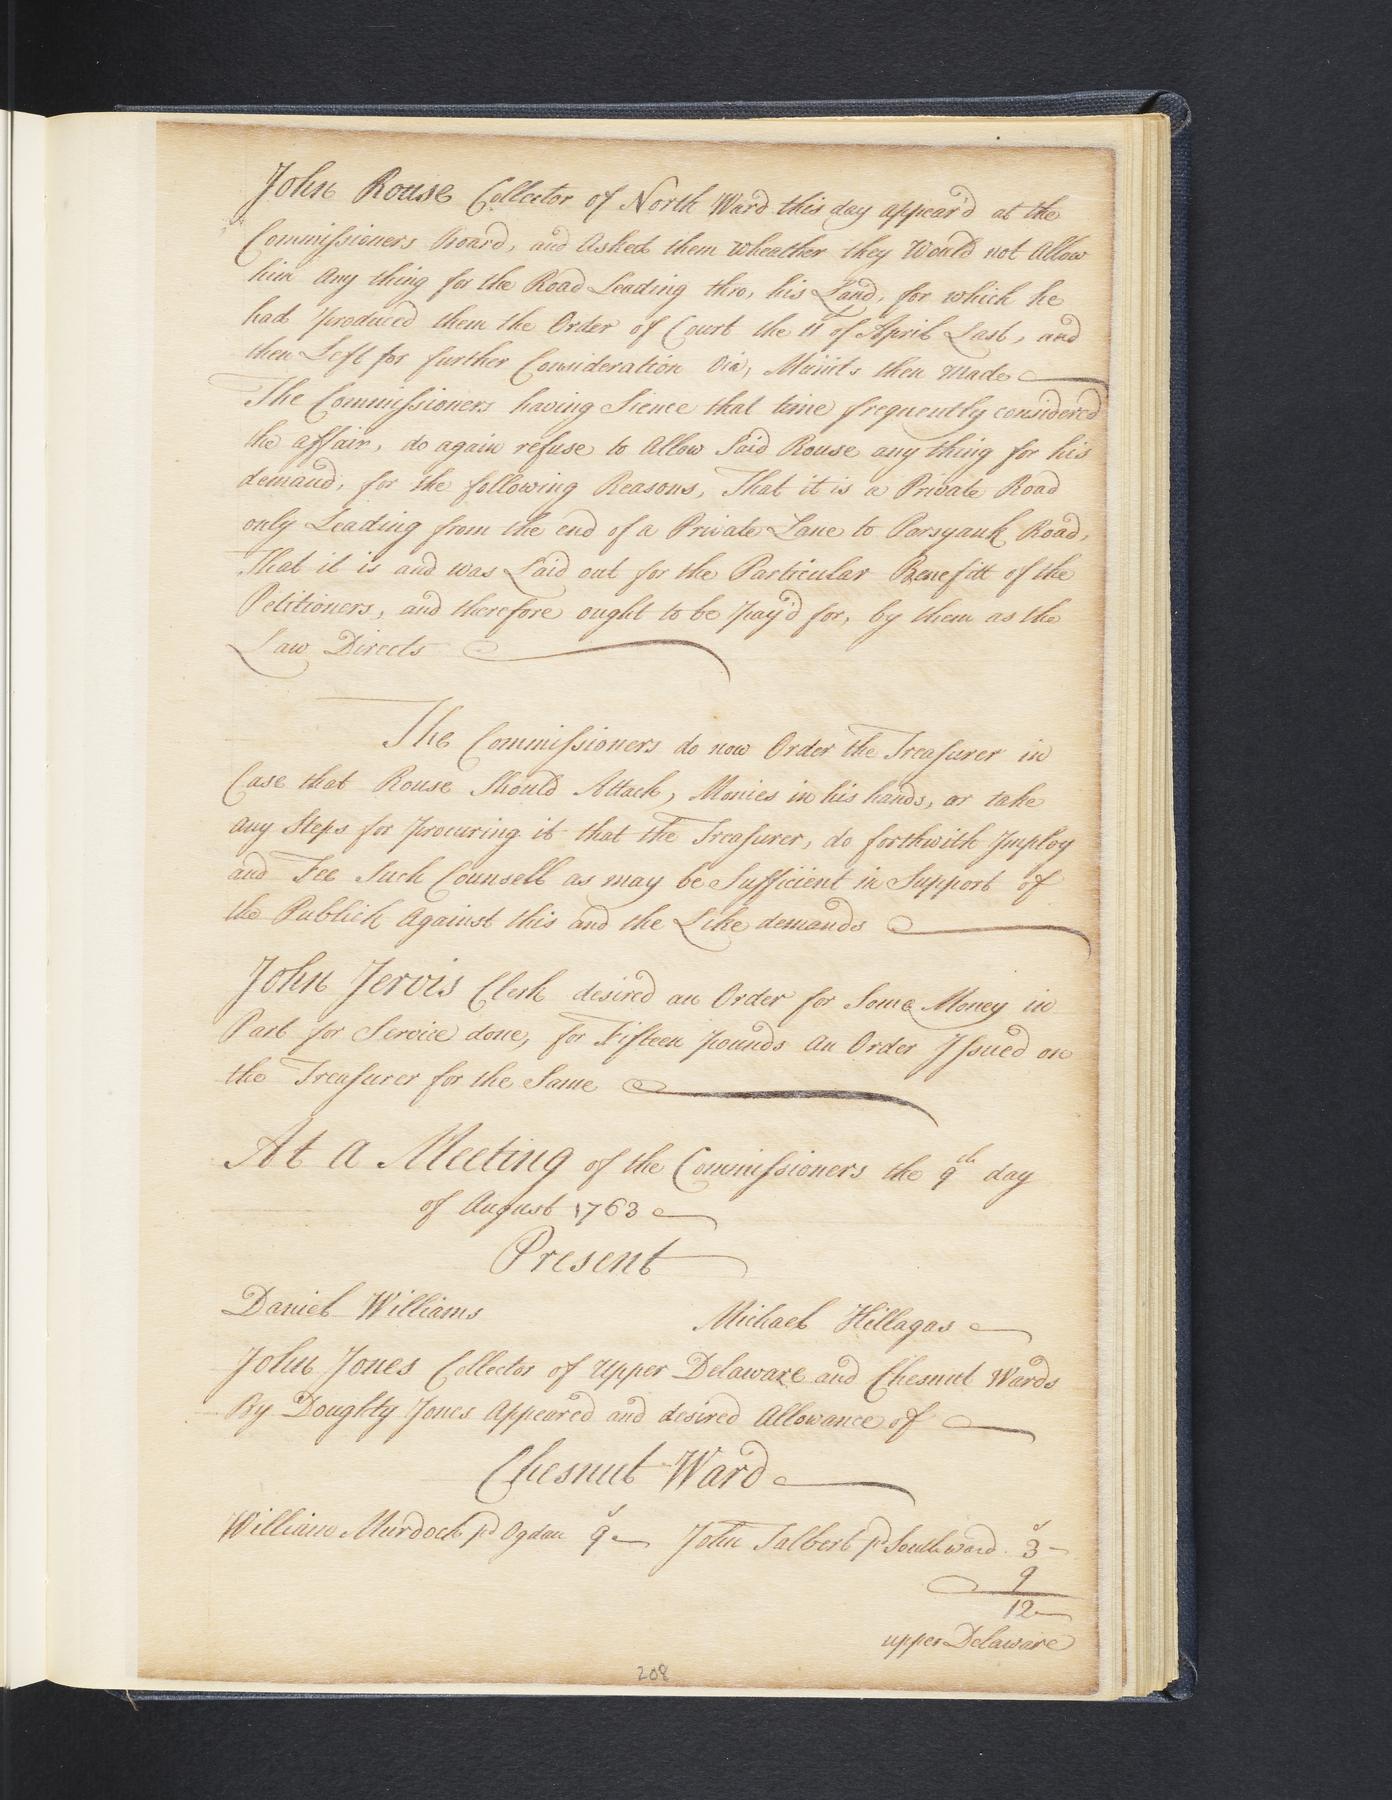 John Rouse Collector of North Ward this day appear'd at the
Commissioners Board, and Asked them wheather they Would not Allow
him Any thing for the Road Leading thro, his Land, for which he
had produced them the Order of Court the 11 of April Last, and
then Left for further Consideration Vid, Minits then made
The Commissioners having Sience that time frequently considered
the affair, do again refuse to Allow Said Rouse any thing for his
demand, for the following Reasons, That it is a Private Road
only Leading from the end of a Private Lane to Parsyank Road,
That it is and was Laid out for the Particular Benefitt of the
Petitioners, and therefore ought to be pay'd for, by them as the
Law Directs
The Commissioners do now Order the Treasurer in
Case that Rouse Should Attach, Monies in his hands, or take
any Steps for procuring it that the Treasurer, do forthwith Imploy
and Fee Such Counsell as may be Sufficient in Support of
the Publick Against this and the Like demands
John Jervis Clerk desired an Order for Some Money in
Part for Service done, for Fifteen pounds an Order Issued on
the Treasurer for the Same
At a Meeting of the Commissioners the 9th day
of August 1763
Present
Daniel Williams Michael Hillagas
John Jones Collector of upper Delaware and Chesnut Wards
By Doughty Jones Appeared and desired Allowance of
Chesnut Ward
William Murdock pd Ogdan 9 John Talbert pd Southward 3
9
12
upper Delaware
208